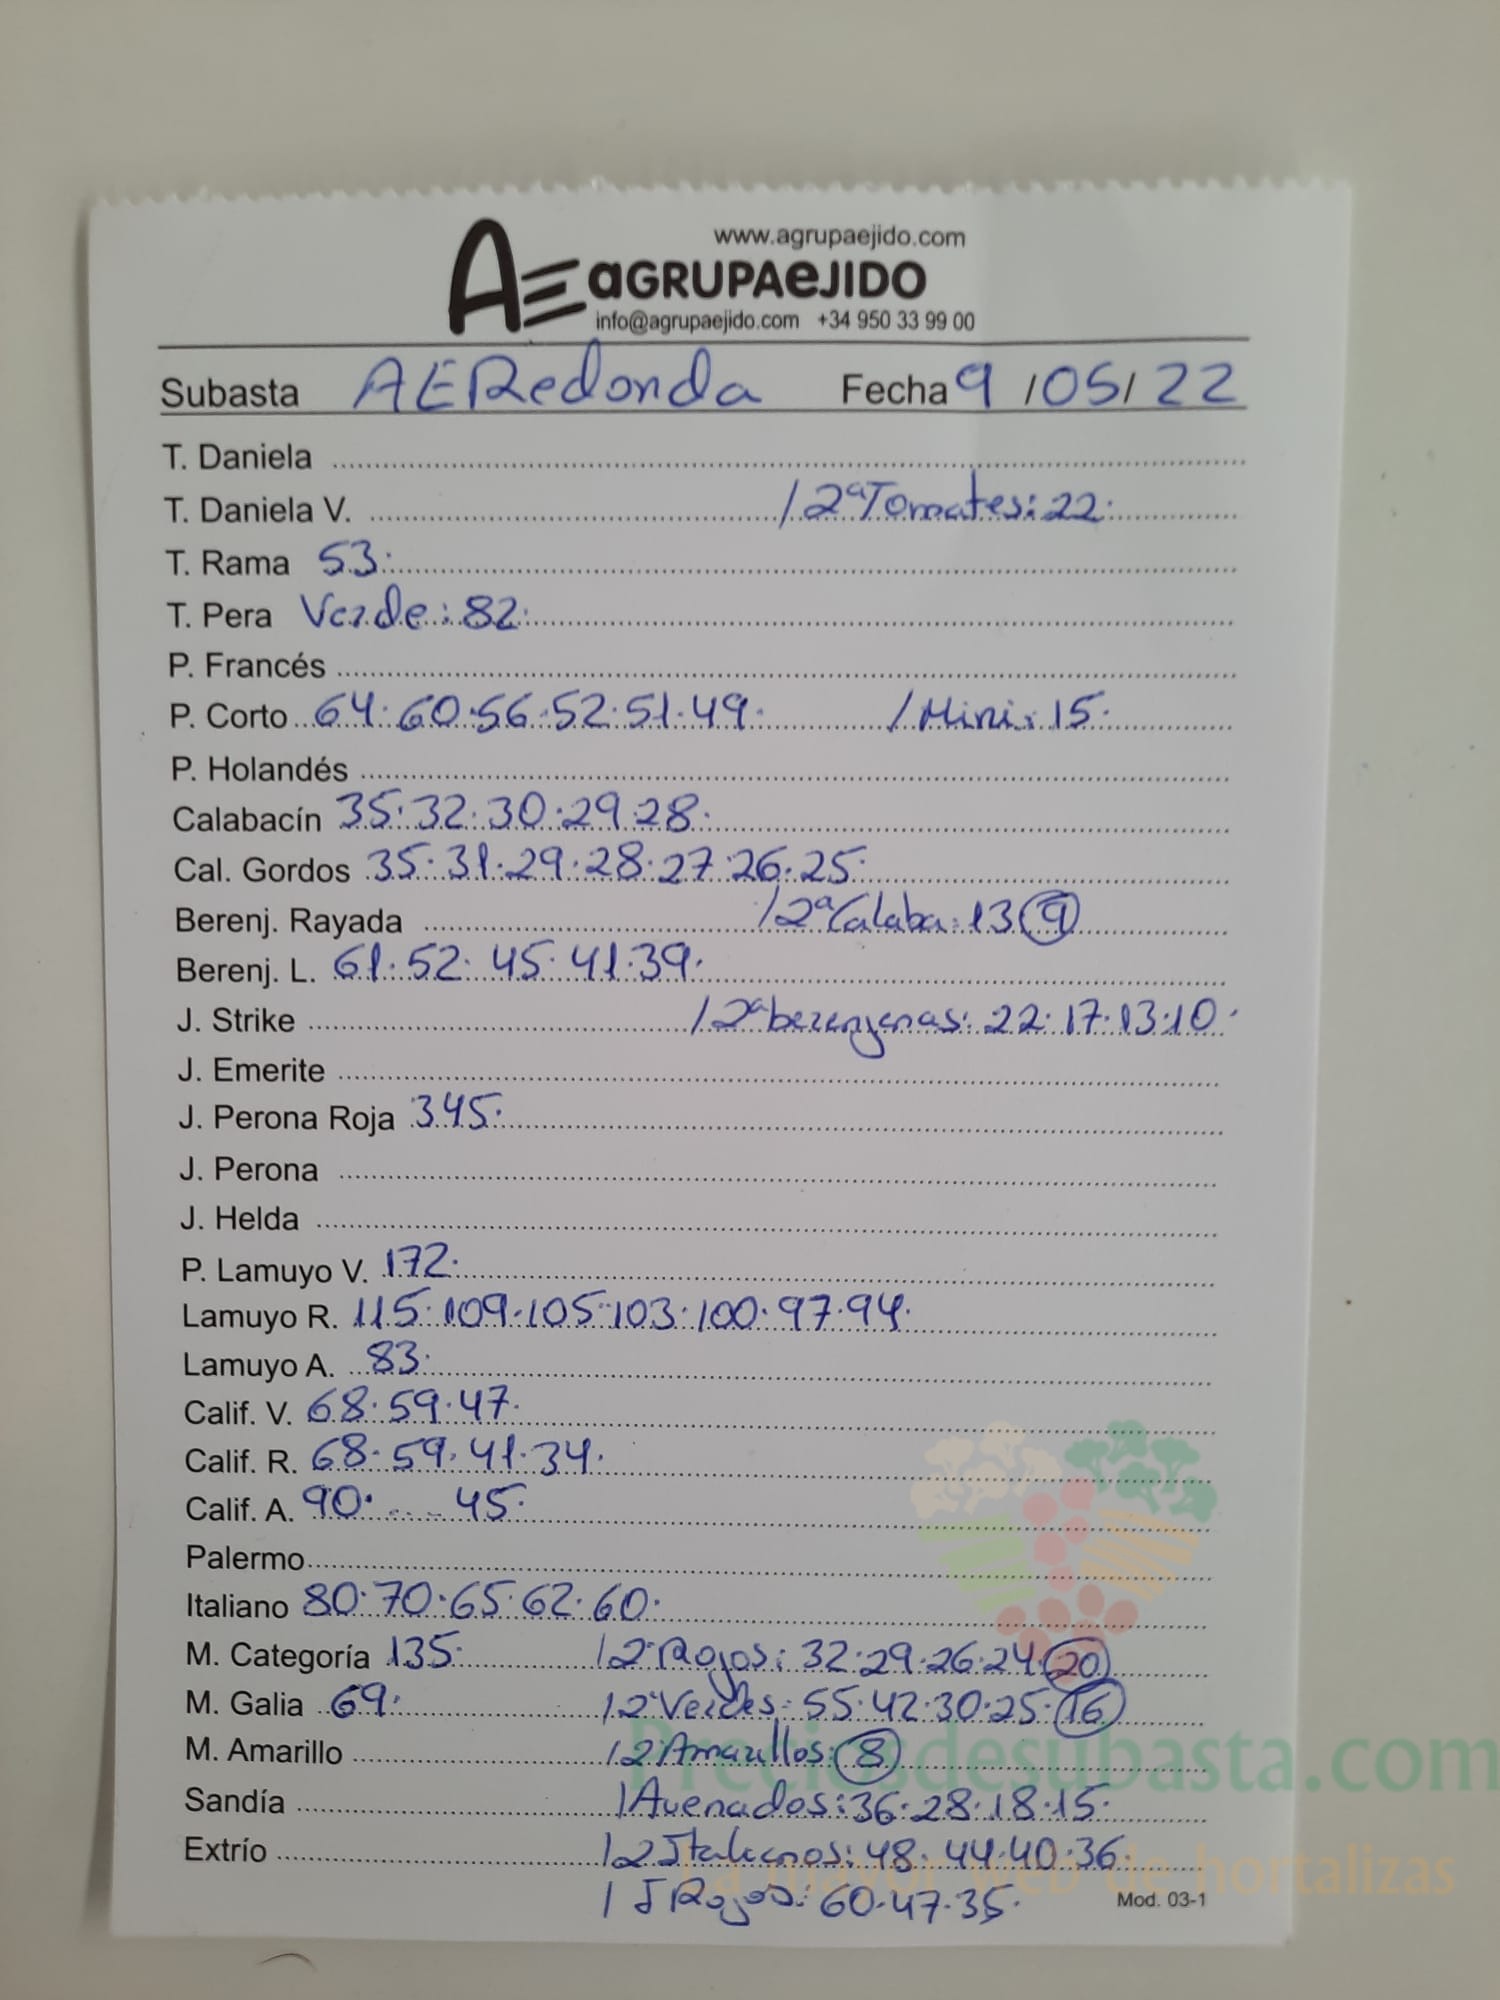 www.agrupaejido.com
AE aGRUPAeJIDO
info@agrupaejido.com +34 950 33 99 00
Subasta AERedonda Fecha 9/05/22
T. Daniela
T. Daniela V. / 2ªTomates: 22.
T. Rama 53.
T. Pera Verde: 82.
P. Francés
P. Corto 64. 60. 56. 52. 51. 49. / Mini: 15.
P. Holandés
Calabacín 35. 32. 30. 29. 28.
Cal. Gordos 35. 31. 29. 28. 27. 26. 25.
Berenj. Rayada / 2ªCalaba: 13 9
Berenj. L. 61. 52. 45. 41. 39.
J. Strike / 2ªberenjenas: 22. 17. 13. 10.
J. Emerite
J. Perona Roja 345.
J. Perona
J. Helda
P. Lamuyo V. 172.
Lamuyo R. 115. 109. 105. 103. 100. 97. 94.
Lamuyo A. 83.
Calif. V. 68. 59. 47.
Calif. R. 68. 59. 41. 34.
Calif. A. 90. ... 45.
Palermo
Italiano 80. 70. 65. 62. 60.
M. Categoría 135. / 2ªRojos: 32. 29. 26. 24. 20
M. Galia 69. / 2ªVerdes: 55. 42. 30. 25. 16
M. Amarillo / 2Amarillos: 8
Sandía / Avenados: 36. 28. 18. 15.
Extrío / 2Italianos: 48. 44. 40. 36.
/ I Rojos: 60. 47. 35.
Mod. 03-1
Preciosdesubasta.com
La mayor web de hortalizas